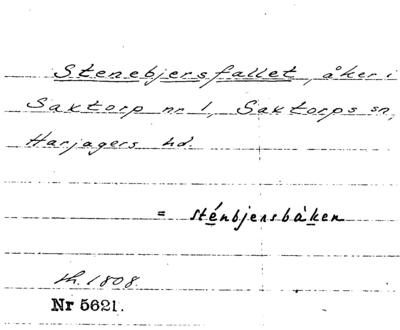 Stenebjersfallet, åker i
Saxtorp nr 1, Saxtorps sn,
Harjagers hd.
= sténbjersbåken
th. 1808.
Nr 5621.